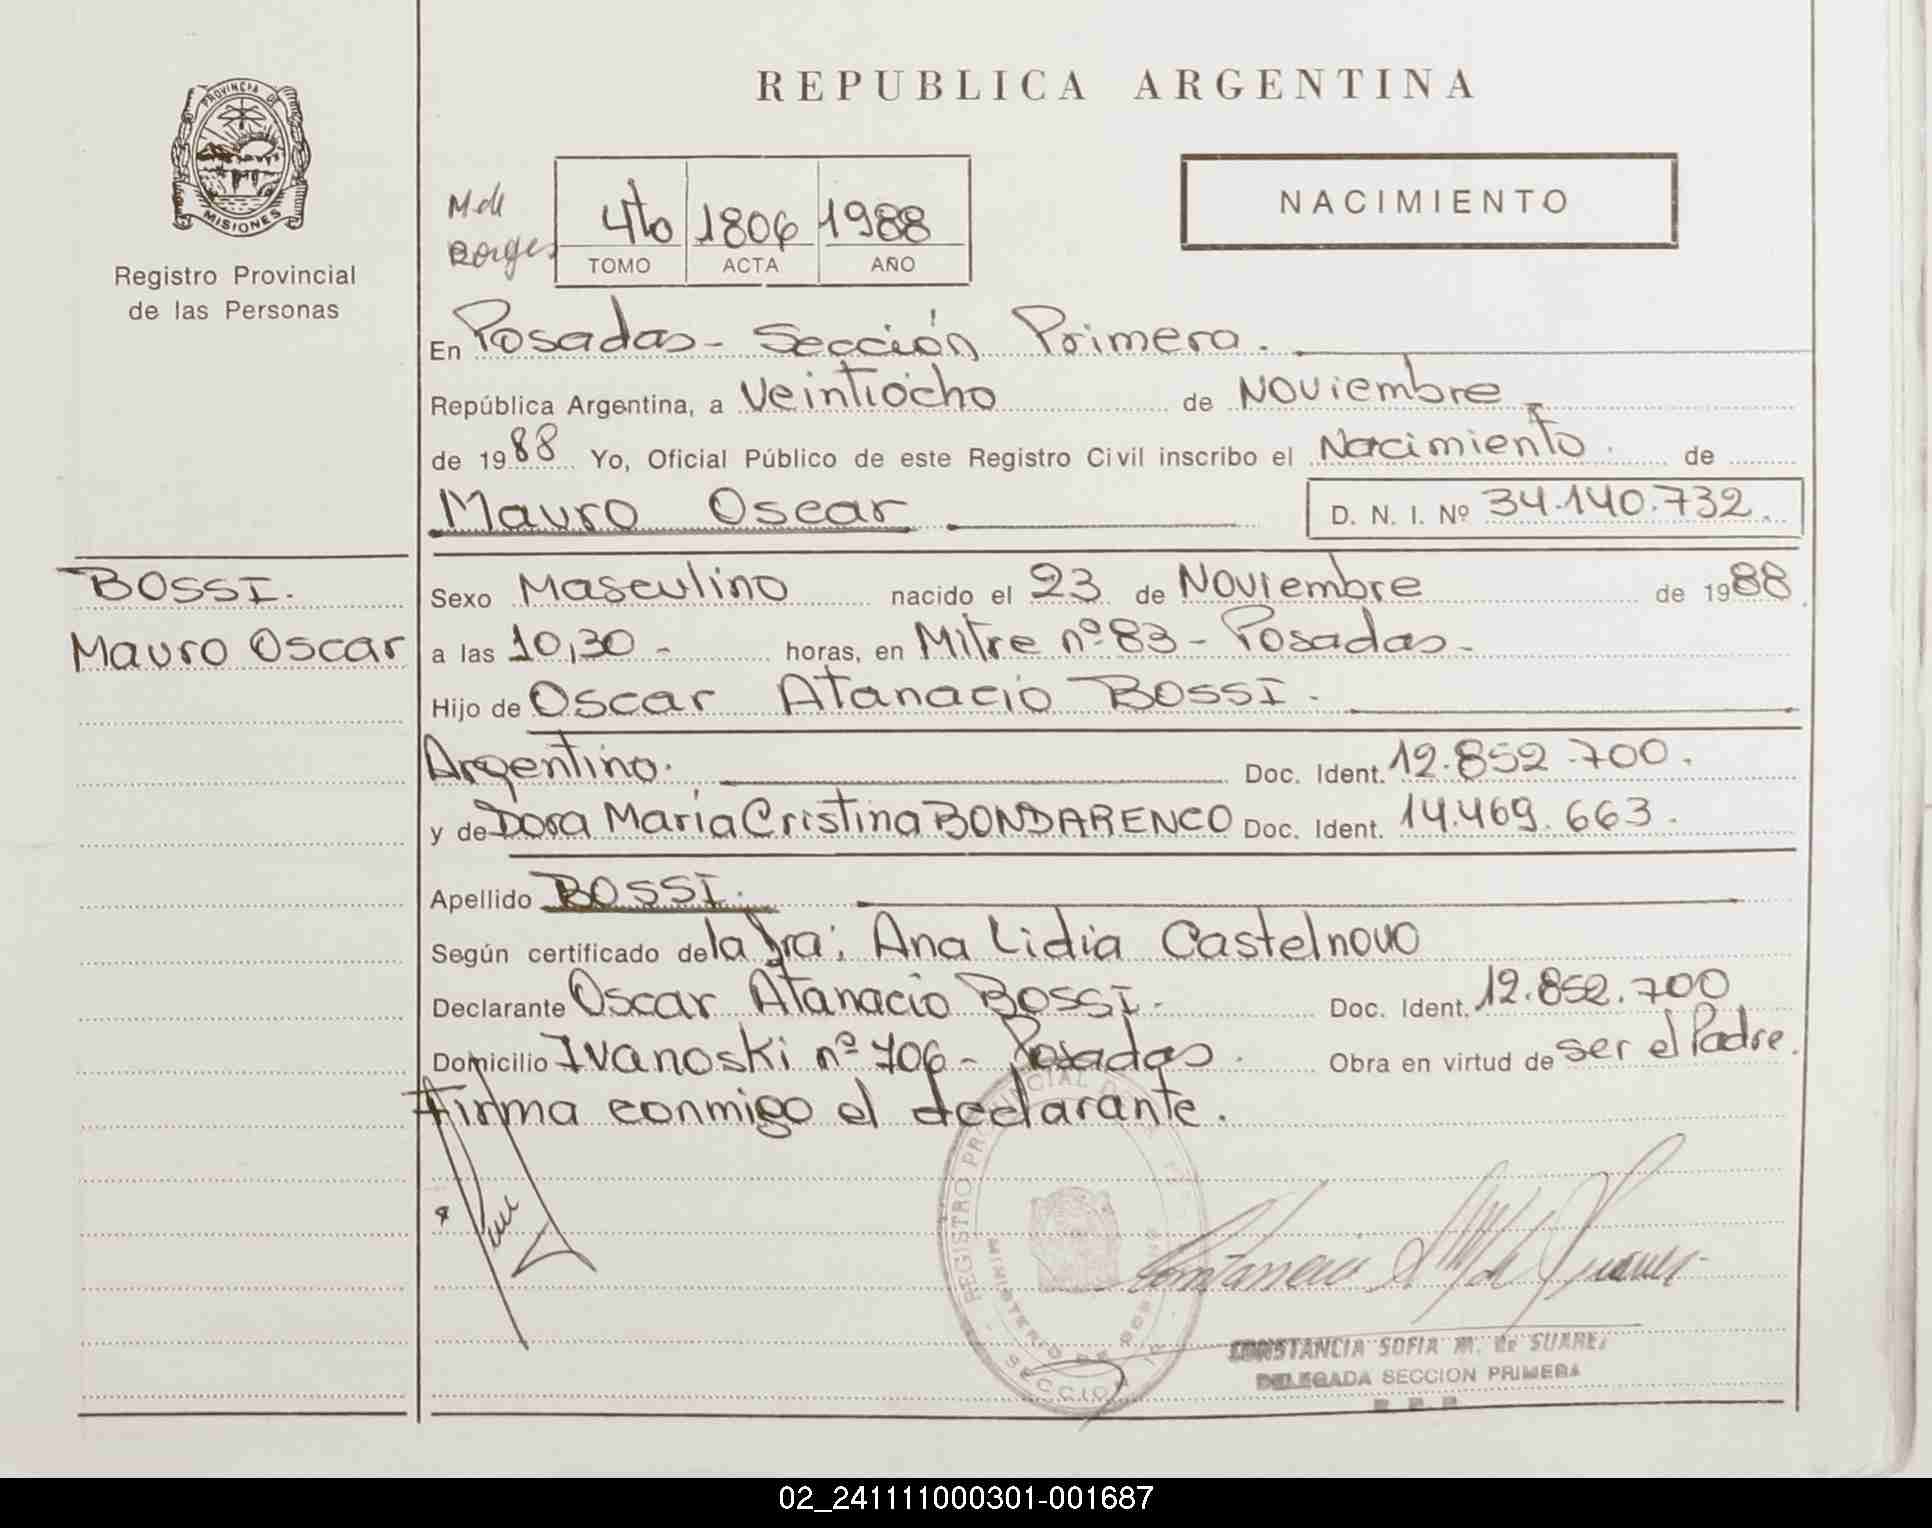 PROVINCIA DE
MISIONES
Registro Provincial
de las Personas
REPUBLICA ARGENTINA
NACIMIENTO
Borges
4to 1806 1988
TOMO ACTA AÑO
En Posadas - Sección Primera.
República Argentina, a Veintiocho de Noviembre
de 1988 Yo, Oficial Público de este Registro Civil inscribo el Nacimiento. de
Mauro Oscar D. N. I. Nº 34.140.732.
BOSSI.
Mauro Oscar
Sexo Masculino nacido el 23 de Noviembre de 1988
a las 10,30 - horas, en Mitre nº 83 - Posadas -
Hijo de Oscar Atanacio BOSSI.
Argentino. Doc. Ident. 12.852.700.
y de Dora María Cristina BONDARENCO Doc. Ident. 14.469.663.
Apellido BOSSI.
Según certificado de la Dra: Ana Lidia Castelnovo
Declarante Oscar Atanacio BOSSI - Doc. Ident. 12.852.700
Domicilio Ivanoski nº 706 - Posadas. Obra en virtud de ser el Padre.
Firma conmigo el declarante.
REGISTRO PROVINCIAL DE
MINISTERIO DE GOBIERNO
SECCION
CONSTANCIA SOFIA M. de SUAREZ
DELEGADA SECCION PRIMERA
02_241111000301-001687